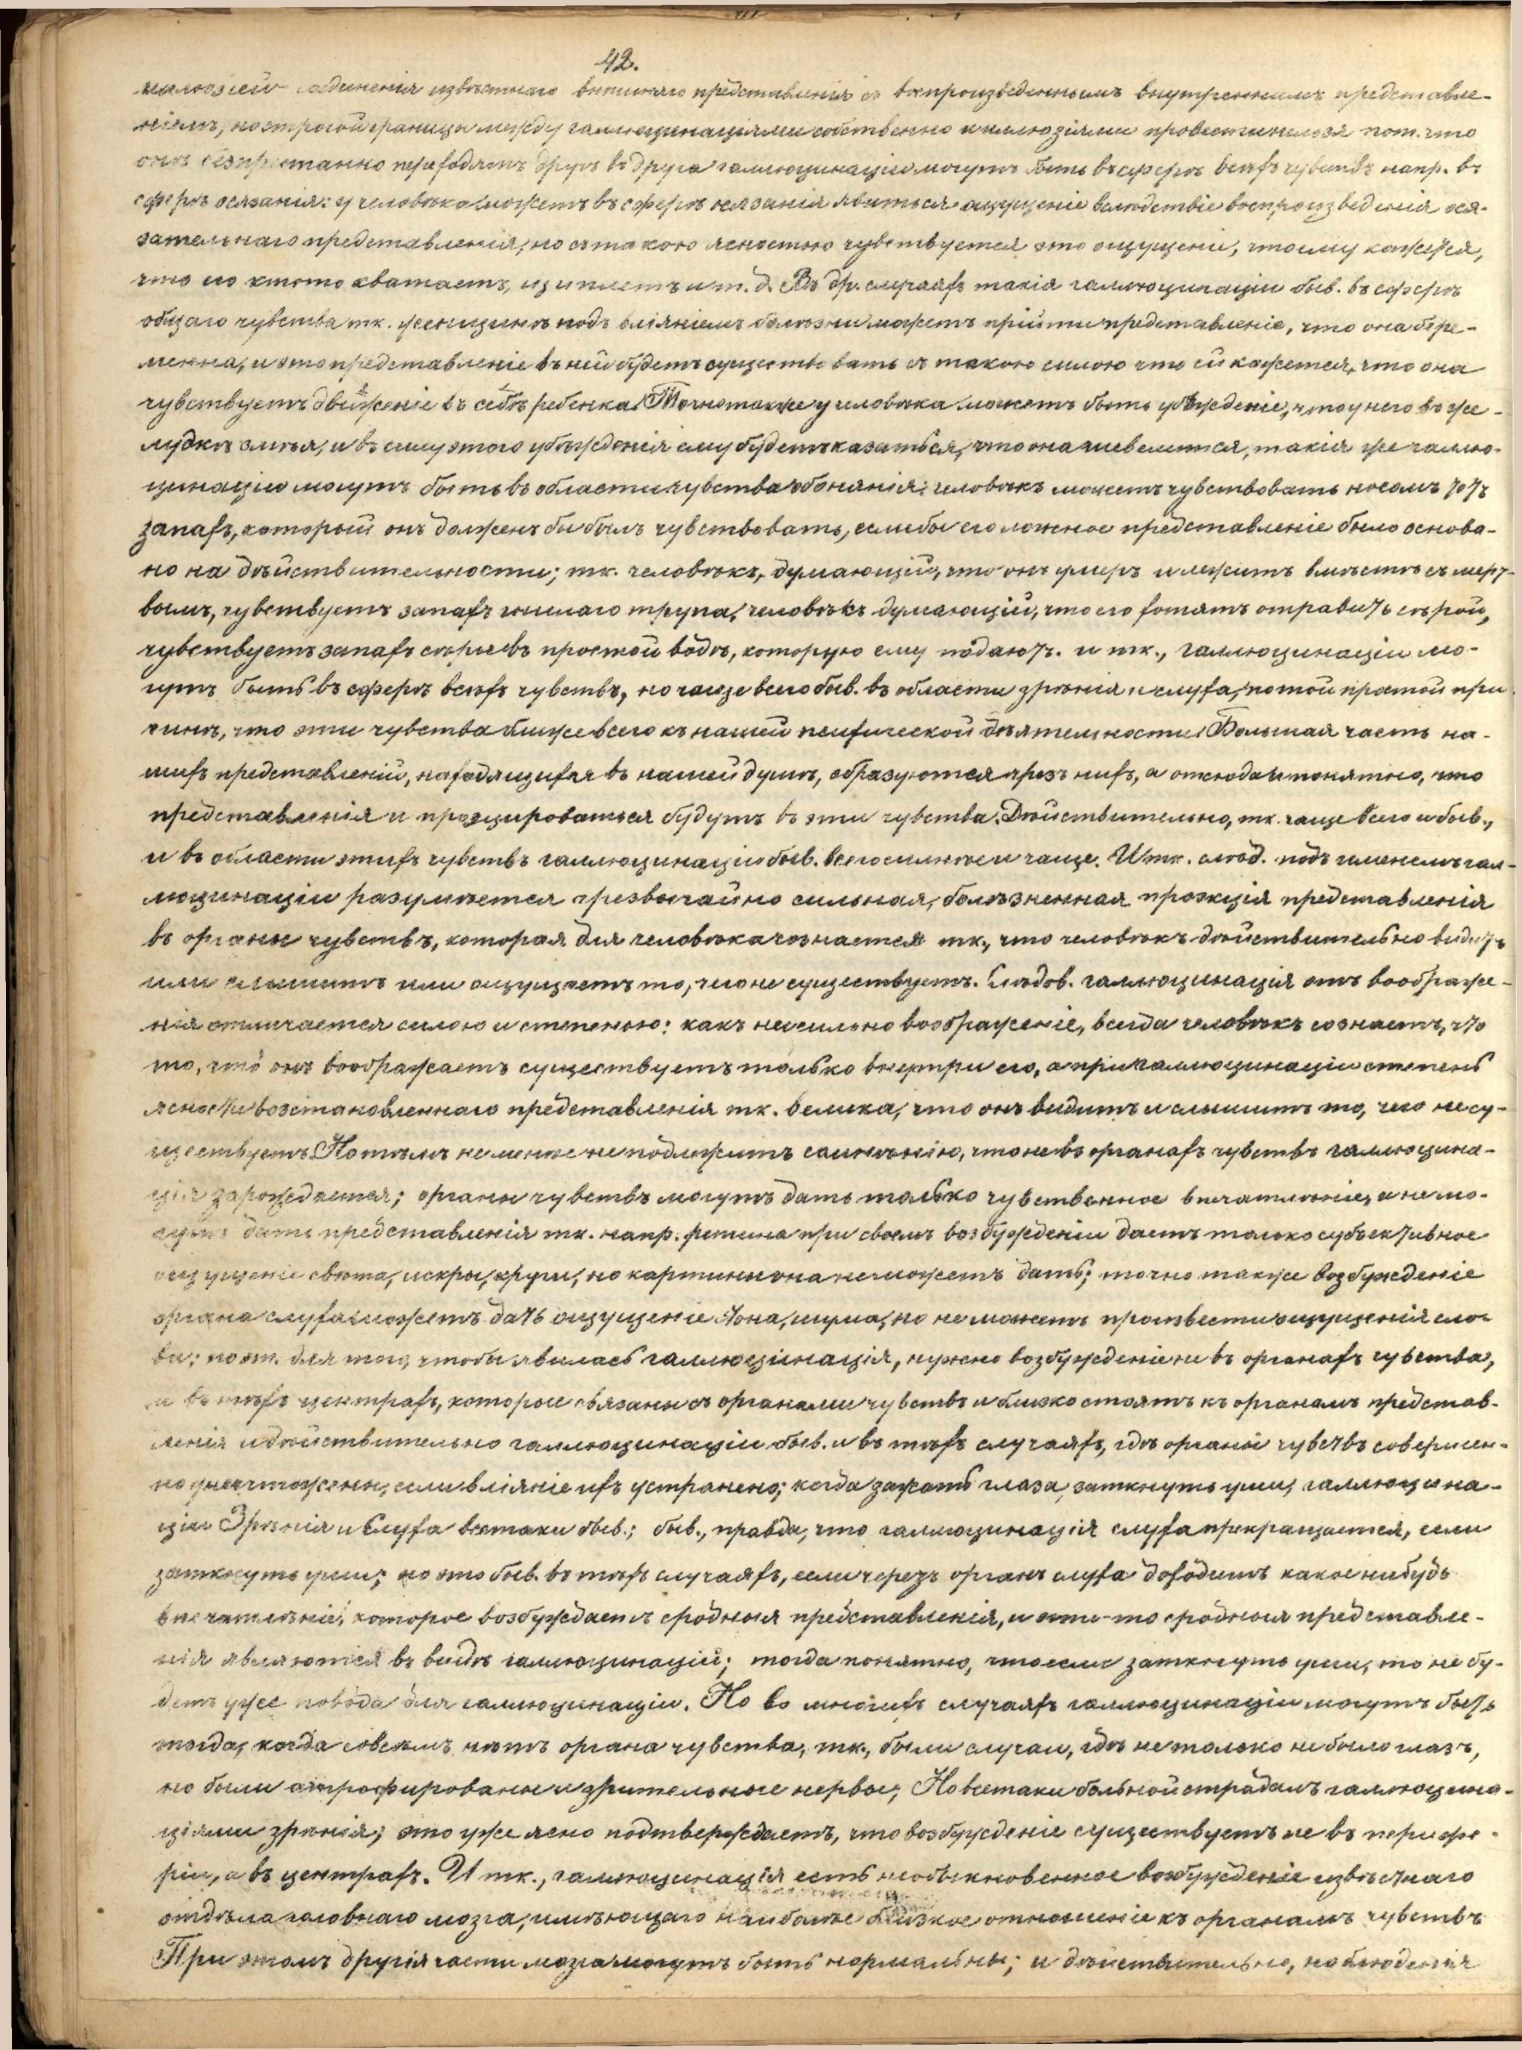 42.
иллюзіей соединенія извѣстнаго внѣшняго представленія съ воспроизведеннымъ внутреннимъ представле-
ніемъ, но строгой границы между галлюцинаціями собственно и иллюзіями провести нельзя пот. что
онѣ безпрестанно переходятъ другъ въ друга галлюцинаціи могутъ быть въ сферѣ всѣхъ чувствъ напр. въ
сферѣ осязанія: у человѣка можетъ въ сферѣ осязанія явиться ощущеніе вслѣдствіе воспроизведенія ося-
зательнаго представленія, но съ такою ясностью чувствуется это ощущеніе, что ему кажется,
что его кто то хватаетъ, щиплетъ и т. д. Въ др. случаяхъ такія галлюцинаціи быв. въ сферѣ
общаго чувства тк. женщинѣ подъ вліяніемъ болѣзни можетъ прійти представленіе, что она бере-
менна, и это представленіе въ ней будетъ существовать съ такою силою что ей кажется, что она
чувствуетъ движеніе въ себѣ ребенка. Точно также у человѣка можетъ быть убѣжденіе, что у него въ же-
лудкѣ змѣя, и въ силу этого убѣжденія ему будетъ казаться, что она шевелится, такія же галлю-
цинаціи могутъ быть въ области чувства обонянія: человѣкъ можетъ чувствовать носомъ тотъ
запахъ, который онъ долженъ бы былъ чувствовать, если бы его ложное представленіе было основа-
но на дѣйствительности; тк. человѣкъ, думающій, что онъ умеръ и лежитъ вмѣстѣ съ мерт-
вымъ, чувствуетъ запахъ гнилаго трупа, человѣкъ думающій, что его хотятъ отравить сѣрой,
чувствуетъ запахъ сѣры въ простой водѣ, которую ему подаютъ. и тк., галлюцинаціи мо-
гутъ быть въ сферѣ всѣхъ чувствъ, но чаще всего быв. въ области зрѣнія и слуха, по той простой при
чинѣ, что эти чувства ближе всего къ нашей психической дѣятельности. Большая часть на-
шихъ представленій, находящихся въ нашей душѣ, образуются чрезъ нихъ, а отсюда и понятно, что
представленія и проэцироваться будутъ въ эти чувства. Дѣйствительно, тк. чаще всего и быв.,
и въ области этихъ чувствъ галлюцинаціи быв. всего сильнѣе и чаще. И тк. слѣд. подъ именемъ гал-
люцинаціи разумѣется чрезвычайно сильная, болѣзненная проэкція представленія
въ органы чувствъ, которая для человѣка сознается тк., что человѣкъ дѣйствительно видитъ
или слышитъ или ощущаетъ то, чего не существуетъ. Слѣдов. галлюцинація отъ воображе-
нія отличается силою и степенью: какъ ни сильно воображеніе, всегда человѣкъ сознаетъ, что
то, что онъ воображаетъ существуетъ только внутри его, а при галлюцинаціи степень
ясности возстановленнаго представленія тк. велика, что онъ видитъ и слышитъ то, чего не су-
ществуетъ. Но тѣмъ не менѣе не подлежитъ сомнѣнію, что не въ органахъ чувствъ галлюцина-
ція зарождается; органы чувствъ могутъ дать только чувственное впечатлѣніе, а не мо-
гутъ дать представленія тк. напр. ретина при своемъ возбужденіи даетъ только субъективное
ощущеніе свѣта, искры, круги, но картины она не можетъ дать; точно также возбужденіе
органа слуха можетъ дать ощущеніе тона, шума, но не можетъ произвести ощущенія сло-
ва; пот. для того, чтобы явилась галлюцинація, нужно возбужденіе не въ органахъ чувства,
а въ тѣхъ центрахъ, которые связаны съ органами чувствъ и близко стоятъ къ органамъ представ-
ленія и дѣйствительно галлюцинаціи быв. и въ тѣхъ случаяхъ, гдѣ органы чувствъ совершен-
но уничтожены, если вліяніе ихъ устранено; когда зажать глаза, заткнуть уши, галлюцина-
ціи Зрѣнія и Слуха всетаки быв.; быв., правда, что галлюцинація слуха прекращается, если
заткнуть уши; но это быв. въ тѣхъ случаяхъ, если черезъ органъ слуха доходитъ какое нибудь
впечатлѣніе, которое возбуждаетъ сродныя представленія, и эти-то сродныя представле-
нія являются въ видѣ галлюцинацій; тогда понятно, что если заткнуть уши, то не бу-
детъ уже повода для галлюцинаціи. Но во многихъ случаяхъ галлюцинаціи могутъ быть
тогда, когда совсѣмъ нѣтъ органа чувства, тк., были случаи, гдѣ не только не было глазъ,
но были атрофированы и зрительные нервы, Но всетаки больной страдалъ галлюцина-
ціями зрѣнія; это уже ясно подтверждаетъ, что возбужденіе существуетъ не въ перифе-
ріи, а въ центрахъ. И тк., галлюцинація есть необыкновенное возбужденіе извѣстнаго
отдѣла головнаго мозга, имѣющаго наиболѣе близкое отношеніе къ органамъ чувствъ
При этомъ другія части мозга могутъ быть нормальны; и дѣйствительно, наблюденія